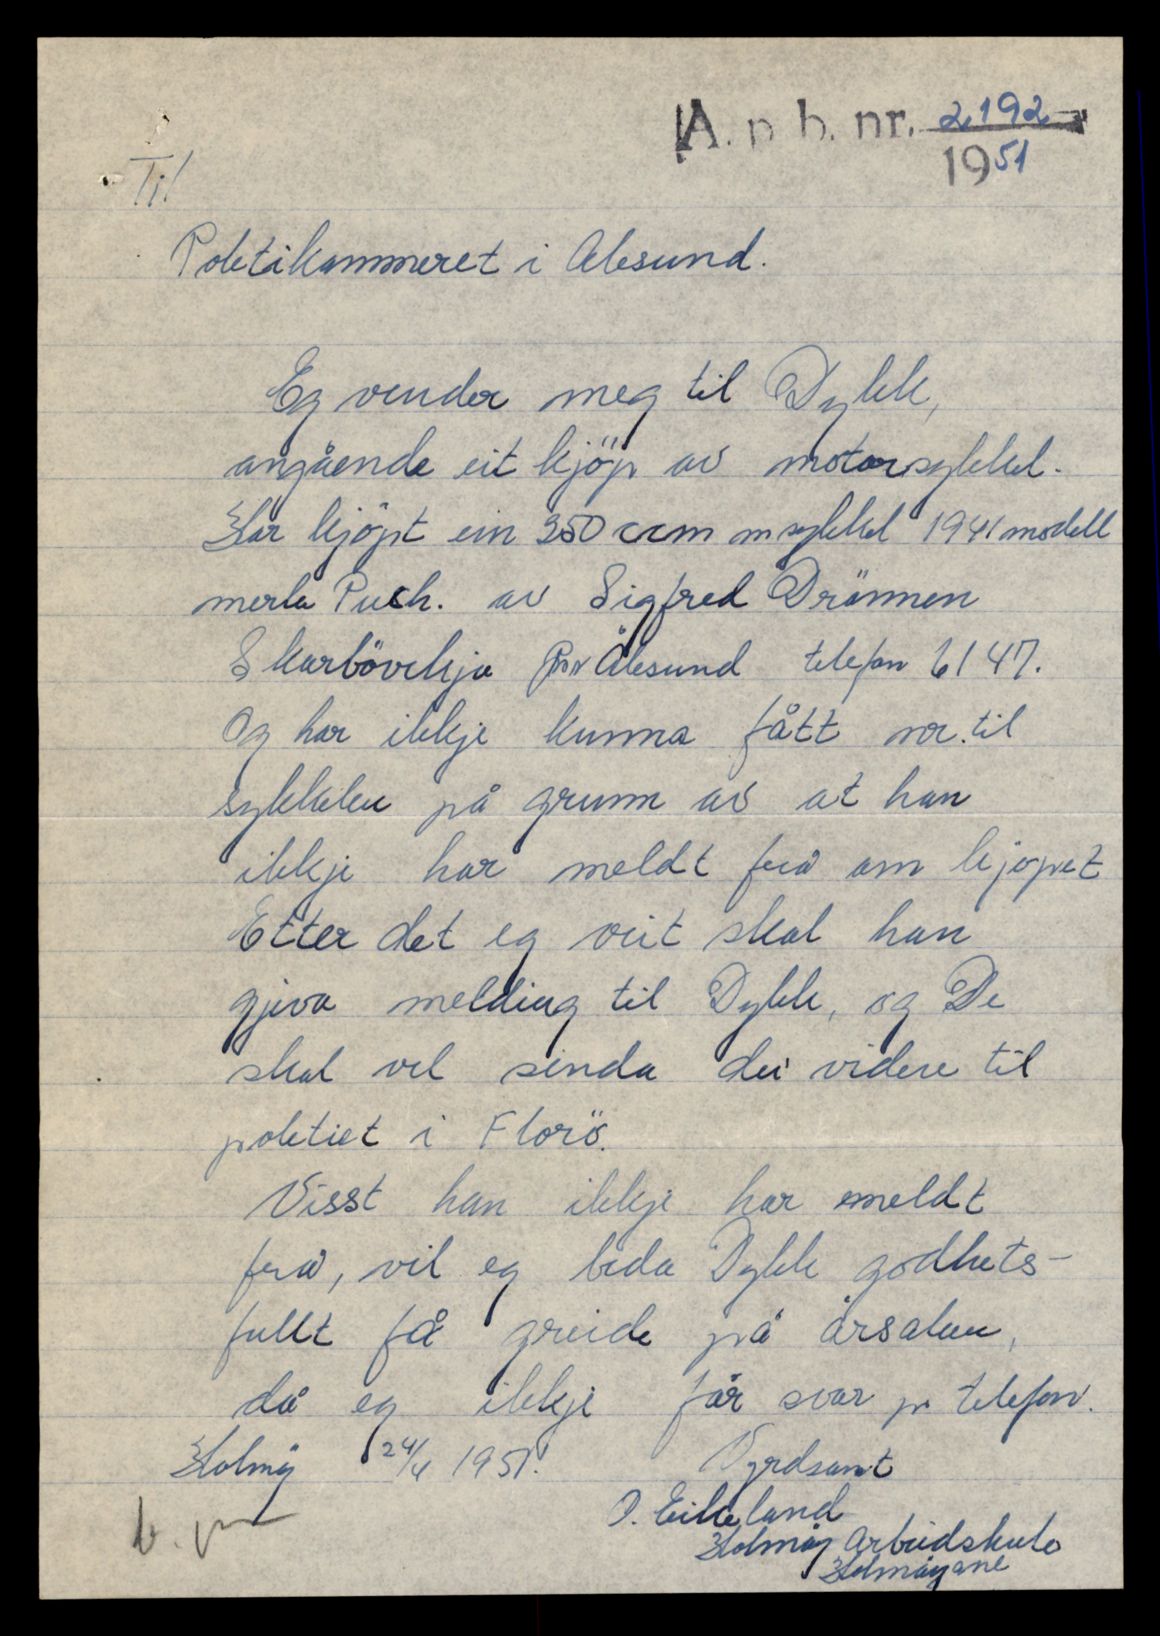 A. p b. nr. 2192
1951
Til
Politikammeret i Ålesund.
Eg vender meg til Dykk,
angående eit kjöp av motorsykkel.
Har kjöpt ein 350 ccm m sykkel 1941 modell
merke Puch. av Sigfred Drönnen
Skarbövikja pr Ålesund telefon 6147.
Og har ikkje kunna fått nr. til
sykkelen på grunn av at han
ikkje har meldt frå om kjöpet
Etter det eg veit skal han
gjeva melding til Dykk, og De
skal vel senda dei videre til
politiet i Florö.
Visst han ikkje har meldt
frå, vil eg beda Dykk godhets-
fullt få greide på årsaken,
då eg ikkje får svar pr telefon.
Holmöy 24/4 1951. Vyrdsamt
O. Eikeland
Holmöy Arbeidskule
Holmöyane